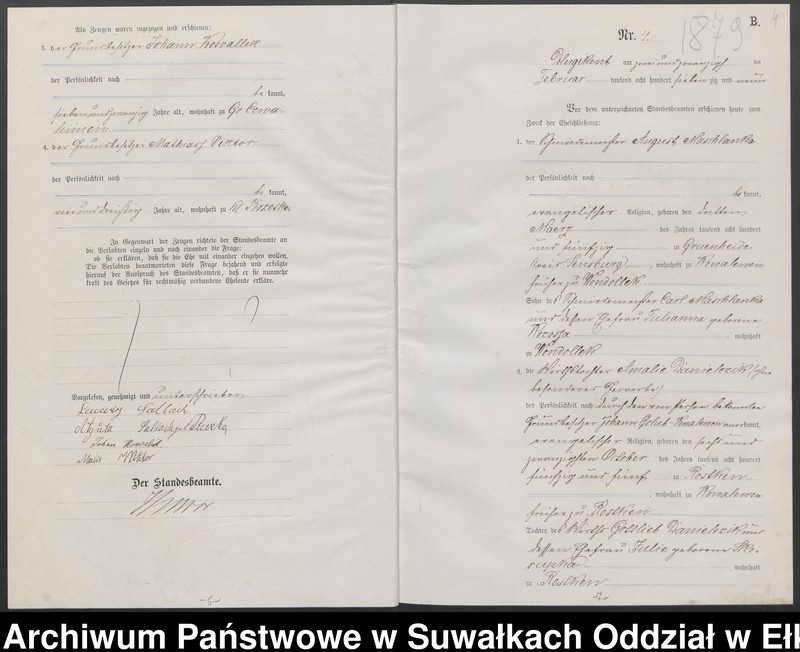 Als Zeugen waren zugezogen und erschienen:
3. der Grundbesitzer Johann Kowallik
der Persönlichkeit nach
be kannt,
siebenundzwanzig Jahre alt, wohnhaft zu Gr. Czwa-
linnen
4. der Grundbesitzer Mathias Viktor
der Persönlichkeit nach
be kannt,
vierunddreißig Jahre alt, wohnhaft zu Kl. Brzosken
In Gegenwart der Zeugen richtete der Standesbeamte an
die Verlobten einzeln und nach einander die Frage:
ob sie erklären, daß sie die Ehe mit einander eingehen wollen.
Die Verlobten beantworteten diese Frage bejahend und erfolgte
hierauf der Ausspruch des Standesbeamten, daß er sie nunmehr
kraft des Gesetzes für rechtmäßig verbundene Eheleute erkläre.
Vorgelesen, genehmigt und unterschrieben
Sallach
Johan Kowalik
Viktor
Der Standesbeamte.
-6-
1879
B.
4
Nr. 4.
Dlugikont am zweiundzwanzigsten
Februar tausend acht hundert siebenzig und neun
Vor dem unterzeichneten Standesbeamten erschienen heute zum
Zweck der Eheschließung:
1. der Schmiedemeister August Maschlanka
der Persönlichkeit nach
be kannt,
evangelischer Religion, geboren den dritten
Maerz des Jahres tausend acht hundert
und fünfzig zu Gruenheide
Kreis Sensburg, wohnhaft zu Kowalewen
früher zu Wondollek
Sohn des Schmiedemeister Carl Maschlanka
und dessen Ehefrau Julianna geborene
wohnhaft
zu Wondollek
2. die Wirthstochter Amalie Danielczik ohne
besonderes Gewerbe
der Persönlichkeit nach durch den von Person bekannten
Grundbesitzer Johann Gotlieb anerkannt,
evangelischer Religion, geboren den sechs und
zwanzigsten October des Jahres tausend acht hundert
fünfzig und fünf zu Rostken
, wohnhaft zu Kowalewen
früher zu Rostken
Tochter des Wirths Gottlieb Danielczik und
dessen Ehefrau Julie geborene Sko-
rupka wohnhaft
zu Rostken
-7-
Archiwum Państwowe w Suwałkach Oddział w Ełk